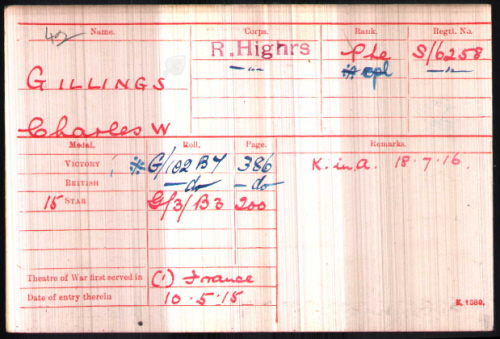 42 Name. Corps. Rank. Regtl. No.
R. Highrs Pte S/6258
GILLINGS —"— * Cpl —"—
Charles W
Medal. Roll. Page. Remarks.
VICTORY * G/102 B7 386 K. in. A. 18.7.16.
BRITISH —do —do
15 STAR G/3/B3 200
Theatre of War first served in (1) France
Date of entry therein 10.5.15
K. 1380.